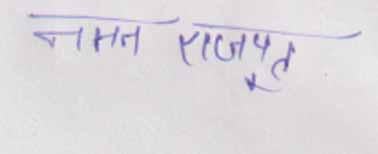 नमन राजपूत